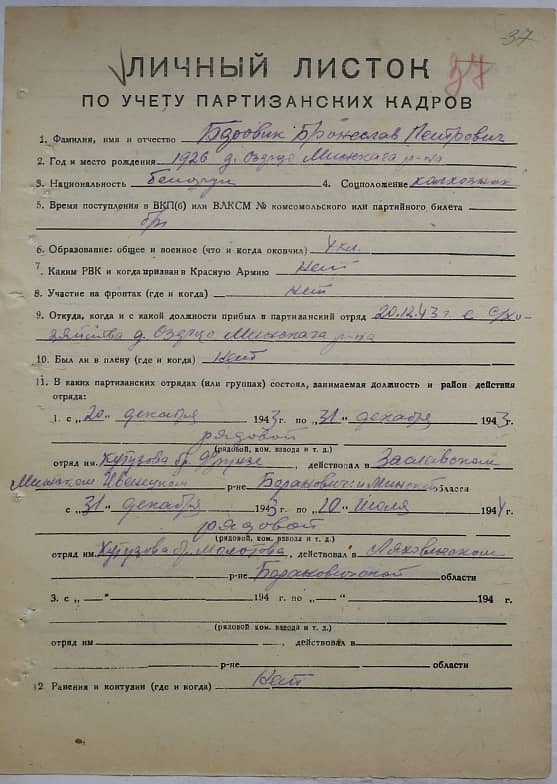 37
ЛИЧНЫЙ ЛИСТОК 37
ПО УЧЕТУ ПАРТИЗАНСКИХ КАДРОВ
1. Фамилия, имя и отчество Бронеслав Петрович
2. Год и место рождения 1926 д. Озерцо Минскага р-на
3. Национальность белорус 4. Соцположение колхозник
5. Время поступления в ВКП(б) или ВЛКСМ № комсомольского или партийного билета
6. Образование: общее и военное (что и когда окончил) 4 кл.
7. Каким РВК и когда призван в Красную Армию Нет
8. Участие на фронтах (где и когда) Нет
9. Откуда, когда и с какой должности прибыл в партизанский отряд 20.12.43 г. с с/хо-
зяйства д. Озерцо Минскага р-на
10. Был ли в плену (где и когда) Нет
11. В каких партизанских отрядах (или группах) состоял, занимаемая должность и район действия
отряда:
1. с „20“ декабря 1943 г. по „31“ декабря 1943 г.
рядовой
(рядовой, ком. взвода и т. д.)
отряд им. Кутузова бр. Фрунзе, действовал в Заславском
Минском Ивенецком р-не Баранович. и Минской области
с „31“ декабря 1943 г. по „10“ июля 1944 г.
рядовой
(рядовой, ком. взвода и т. д.)
отряд им. Кутузова бр. Молотова, действовал в
р-не Барановичской области
3. с „—“ 194 г. по „—“ 194 г.
(рядовой ком. взвода и т. д.)
отряд им , действовал в
р-не области
12. Ранения и контузии (где и когда) Нет